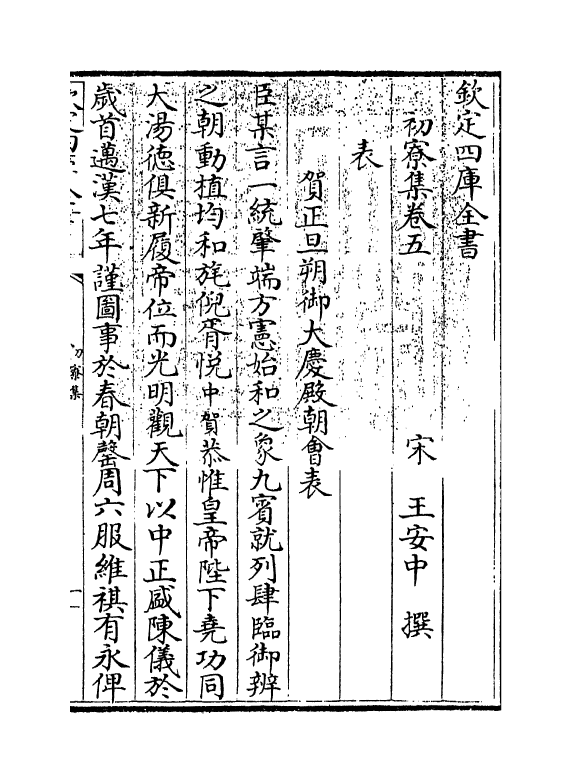 欽定四庫全書
初寮集卷五
宋 王安中 撰
表
賀正旦朔御大慶殿朝會表
臣某言一統肇端方憲始和之象九賓就列肆臨御辨
之朝動植均和旄倪胥悦中賀恭惟皇帝陛下堯功同
大湯徳俱新履帝位而光明觀天下以中正盛陳儀於
歳首邁漢七年謹圖事於春朝罄周六服維祺有永俾
初寮集